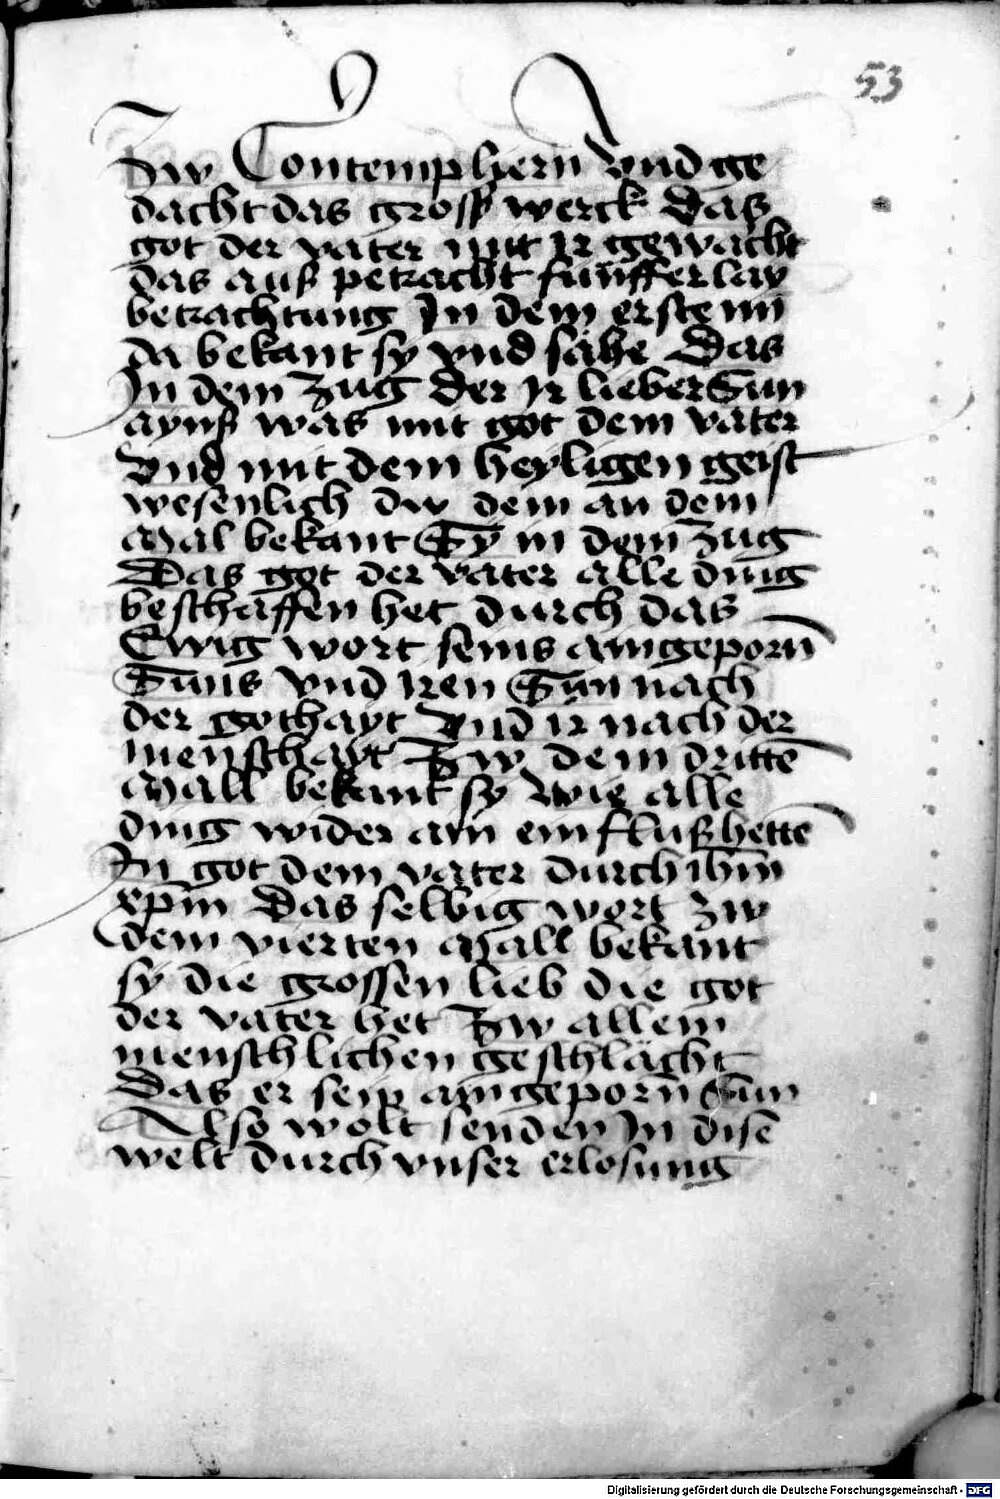 53
Zw Contempliern vnd ge
dacht das gross werck das
got der vater mit ir gewacht
das aus petracht funfferlay
betrachtung In dem erstenn
da bekant sy vnd sahe Das
In dem zug der Ir lieber Sun
ayns was mit got dem vater
vnd mit dem heyligen geist
wesenlich dw dem an dem
Mal bekant Sy in dem zug
Das got der vater alle ding
beschaffen het durch das
Ewig wort seins aingeporn̄
Suns vnd iren Sun nach
der gothayt vnd ir nach der
menschayt Zw dem drittē
Mall bekant sy wie alle
ding wider ain einfluß hettē
In got dem vater durch ihm̄
xp̄m Das selbig wort zw
dem vierten Mall bekant
sy die grossen lieb die got
der vater het Zw allem
menschlichen geschlächt
Das er sein aingeporn Sun
Also wolt senden In disē
welt durch vnser erlosung
Digitalisierung gefördert durch die Deutsche Forschungsgemeinschaft - DFG